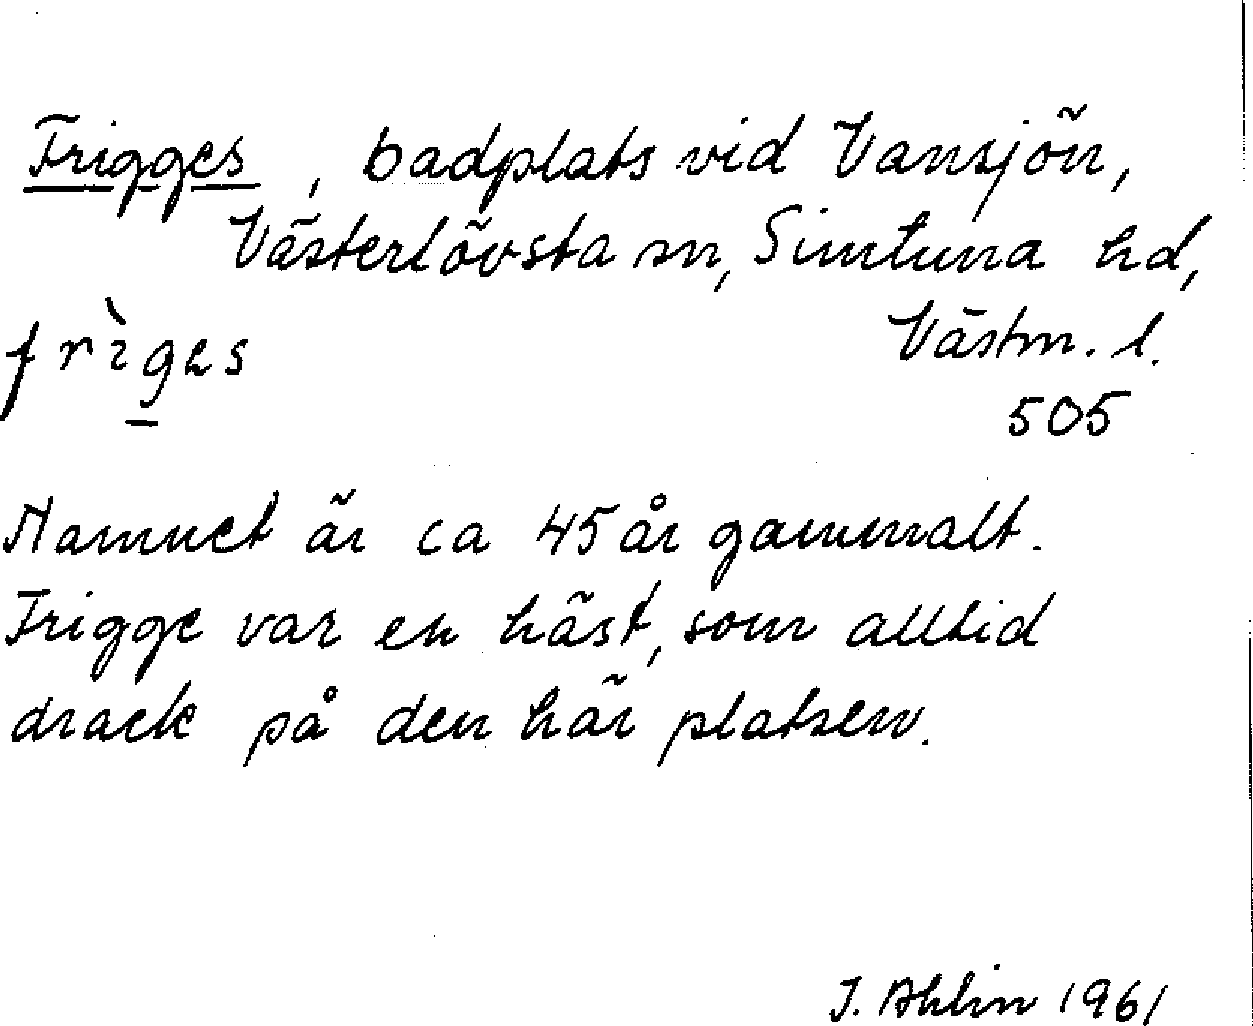 Frigges, badplats vid Vansjön,
Västerlövsta sn, Simtuna hd,
frìg̲es
Västm. l.
505
Namnet är ca 45 år gammalt.
Frigge var en häst, som alltid
drack på den här platsen.
I. Ahlin 1961